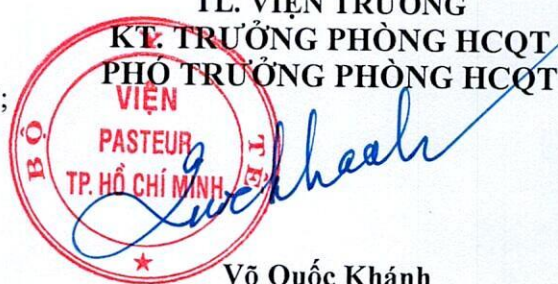 TL. VIỆN TRƯỞNG
KT. TRƯỞNG PHÒNG HCQT
PHÓ TRƯỞNG PHÒNG HCQT
;
BỘ Y TẾ
VIỆN
PASTEUR
TP. HỒ CHÍ MINH
Võ Quốc Khánh